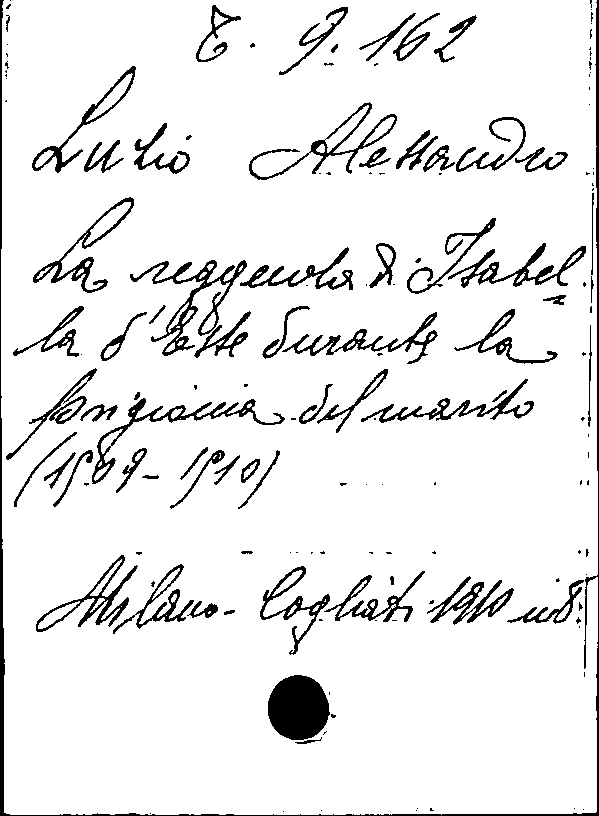 T. 9. 162
Luzio Alessandro
La reggenza di Isabel
la d'Este durante la
prigionia del marito
(1509-1510)
Milano - Cogliati 1910 in 8.